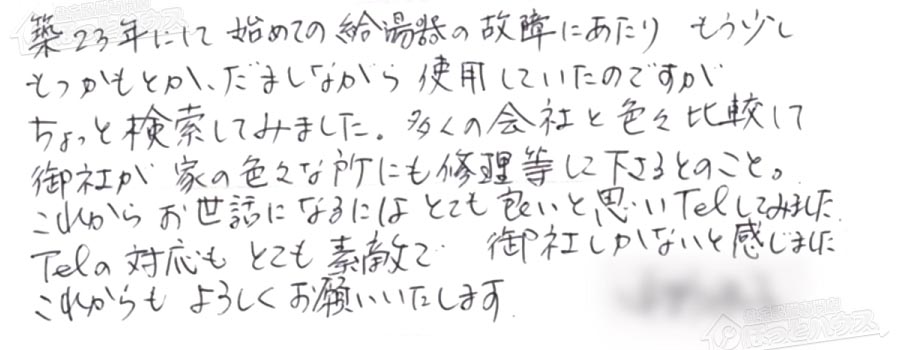 築23年にして 始めての給湯器の故障にあたり もう少し
もつかもとか、だましながら 使用していたのですが
ちょっと検索してみました。多くの会社と色々比較して
御社が 家の色々な所にも修理等して下さるとのこと。
これから お世話になるにはとても良いと思いTelしてみました.
Telの対応もとても素敵で 御社しかないと感じました
これからも よろしくお願いいたします.